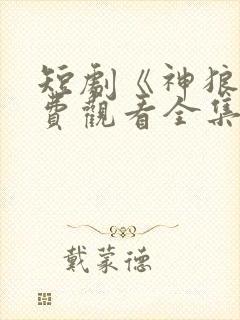 短劇《神狼
費觀看全集
戴蒙德